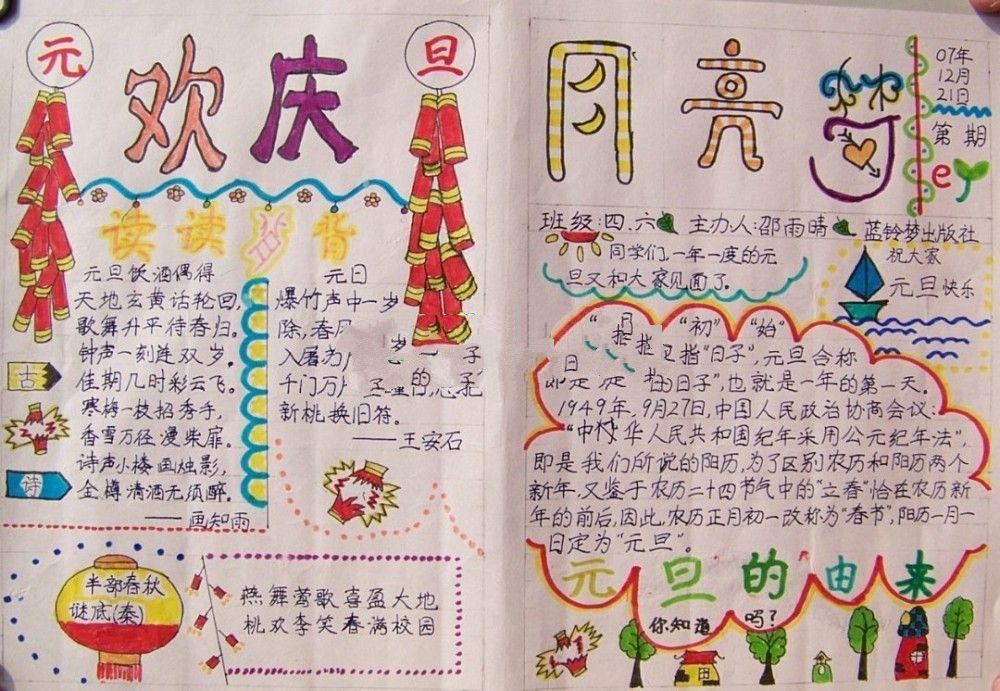 元
旦
欢庆
读读背
元旦饮酒偶得
天地玄黄话轮回,
歌舞升平待春归。
钟声一刻连双岁,
佳期几时彩云飞。
寒梅一枝招秀手,
香雪万径漫柴扉。
诗声小楼画烛影,
金樽清酒无须醉。
——画知雨
古
诗
元日
爆竹声中一岁
除,春
入屠
千门万
新桃换旧符。
——王安石
半部春秋
谜底(秦)
燕舞莺歌喜盈大地
桃欢李笑春满校园
月亮
07年
12月
21日
第 期
班级:四.六 主办人:邵雨晴 蓝铃梦出版社
同学们,一年一度的元
旦又和大家见面了。
祝大家
元旦快乐
“初” “始”
指“日子”,元旦合称
的日子”,也就是一年的第一天。
1949年,9月27日,中国人民政治协商会议:
“中华人民共和国纪年采用公元纪年法”,
即是我们所说的阳历,为了区别农历和阳历两个
新年,又鉴于农历二十四节气中的“立春”恰在农历新
年的前后,因此,农历正月初一改称为“春节”,阳历一月一
日定为“元旦”。
元旦的由来
你知道 吗?